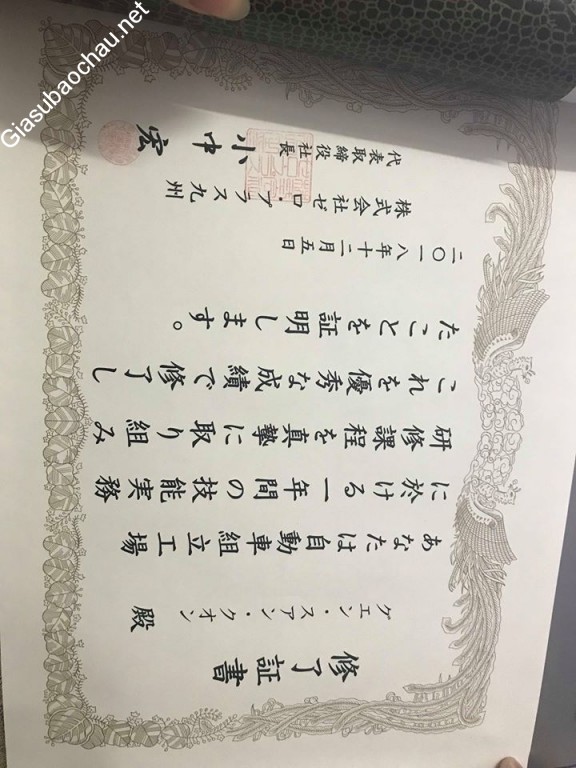 修了証書
グエン・スアン・クオン
殿
あなたは自動車組立工場
に於ける一年間の技能実務
研修課程を真摯に取り組み
これを優秀な成績で修了し
たことを証明します。
二〇一八年十二月五日
株式会社ゼロ・プラス九州
代表取締役社長
小中 宏
Giasubaochau.net